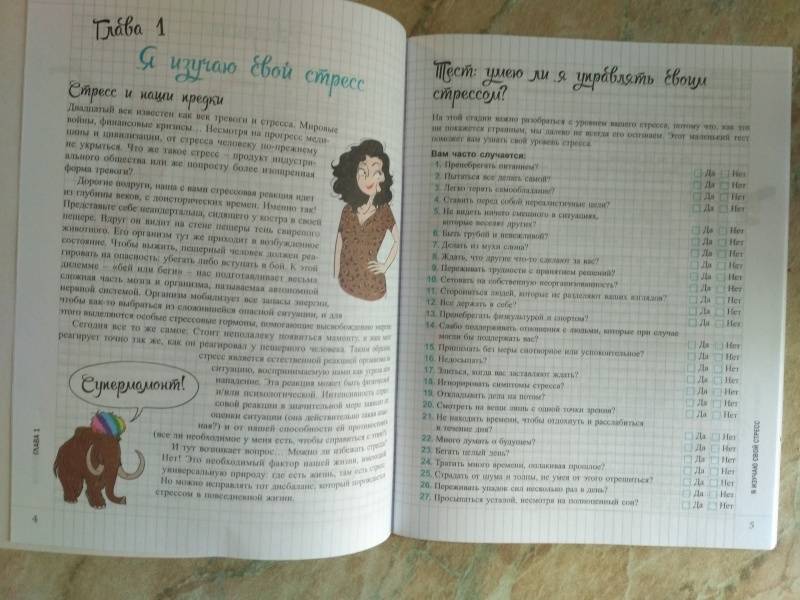 Глава 1
Я изучаю свой стресс
Стресс и наши предки
Двадцатый век известен как век тревоги и стресса. Мировые
войны, финансовые кризисы... Несмотря на прогресс меди-
цины и цивилизации, от стресса человеку по-прежнему
не укрыться. Что же такое стресс – продукт индустри-
ального общества или же попросту более изощренная
форма тревоги?
Дорогие подруги, наша с вами стрессовая реакция идет
из глубины веков, с доисторических времен. Именно так!
Представьте себе неандертальца, сидящего у костра в своей
пещере. Вдруг он видит на стене пещеры тень свирепого
животного. Его организм тут же приходит в возбужденное
состояние. Чтобы выжить, пещерный человек должен реа-
гировать на опасность: убегать либо вступать в бой. К этой
дилемме – «бей или беги» – нас подготавливает весьма
сложная часть мозга и организма, называемая автономной
нервной системой. Организм мобилизует все запасы энергии,
чтобы как-то выбраться из сложившейся опасной ситуации, и для
этого выделяются особые стрессовые гормоны, помогающие высвобождению энергии
Сегодня все то же самое. Стоит неподалеку появиться мамонту, и наш мозг
реагирует точно так же, как он реагировал у пещерного человека. Таким образом,
стресс является естественной реакцией организма на
ситуацию, воспринимаемую нами как угроза или
нападение. Эта реакция может быть физической
и/или психологической. Интенсивность стрес-
совой реакции в значительной мере зависит от
оценки ситуации (она действительно такая опас-
ная?) и от нашей способности ей противостоять
(все ли необходимое у меня есть, чтобы справиться с этим?).
И тут возникает вопрос... Можно ли избежать стресса?
Нет! Это необходимый фактор нашей жизни, имеющий
универсальную природу: где есть жизнь, там есть стресс.
Но можно исправлять тот дисбаланс, который порождается
стрессом в повседневной жизни.
Супермамонт!
ГЛАВА 1
4
Тест: умею ли я управлять своим
стрессом?
На этой стадии важно разобраться с уровнем вашего стресса, потому что, как это
ни покажется странным, мы далеко не всегда его осознаем. Этот маленький тест
поможет вам узнать свой уровень стресса.
Вам часто случается:
1. Пренебрегать питанием? Да Нет
2. Пытаться все делать самой? Да Нет
3. Легко терять самообладание? Да Нет
4. Ставить перед собой нереалистичные цели? Да Нет
5. Не видеть ничего смешного в ситуациях,
которые веселят других? Да Нет
6. Быть грубой и невежливой? Да Нет
7. Делать из мухи слона? Да Нет
8. Ждать, что другие что-то сделают за вас? Да Нет
9. Переживать трудности с принятием решений? Да Нет
10. Сетовать на собственную неорганизованность? Да Нет
11. Сторониться людей, которые не разделяют ваших взглядов? Да Нет
12. Все держать в себе? Да Нет
13. Пренебрегать физкультурой и спортом? Да Нет
14. Слабо поддерживать отношения с людьми, которые при случае
могли бы поддержать вас? Да Нет
15. Принимать без меры снотворное или успокоительное? Да Нет
16. Недосыпать? Да Нет
17. Злиться, когда вас заставляют ждать? Да Нет
18. Игнорировать симптомы стресса? Да Нет
19. Откладывать дела на потом? Да Нет
20. Смотреть на вещи лишь с одной точки зрения? Да Нет
21. Не находить времени, чтобы отдохнуть и расслабиться
в течение дня? Да Нет
22. Много думать о будущем? Да Нет
23. Бегать целый день? Да Нет
24. Тратить много времени, оплакивая прошлое? Да Нет
25. Страдать от шума и толпы, не умея от этого отрешиться? Да Нет
26. Переживать упадок сил несколько раз в день? Да Нет
27. Просыпаться усталой, несмотря на полноценный сон? Да Нет
Я ИЗУЧАЮ СВОЙ СТРЕСС
5